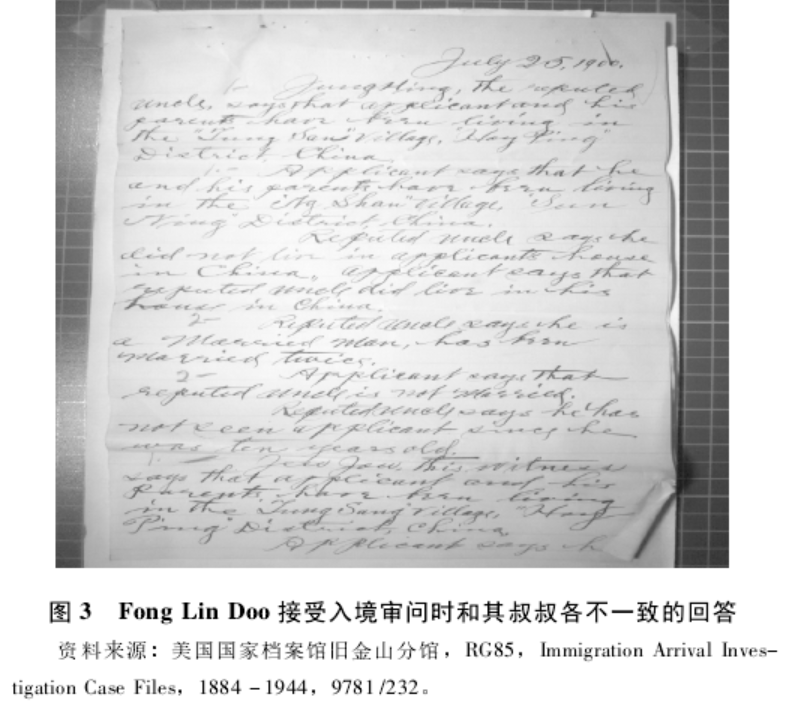 July 25, 1900.
1- Jung Hing, the reputed
uncle, says that applicant and his
parents have been living in
the "Tung San" Village, "Hoy Ping"
District, China.
1- Applicant says that he
and his parents have been living
in the "Ng Shan" Village, "Sun
Ning" District, China.
Reputed uncle says he
did not live in applicants house
in China, applicant says that
reputed uncle did live in his
house in China.
2- Reputed Uncle says he is
a Married man, has been
married twice.
2- Applicant says that
reputed uncle is not married.
Reputed uncle says he has
not seen applicant since he
was ten years old.
Jow, this witness
says that applicant and his
Parents have been living
in the "Tung Sang" Village, "Hoy
Ping" District, China,
Applicant says h
图 3 Fong Lin Doo 接受入境审问时和其叔叔各不一致的回答
资料来源：美国国家档案馆旧金山分馆，RG85，Immigration Arrival Inves-
tigation Case Files，1884 -1944，9781/232。